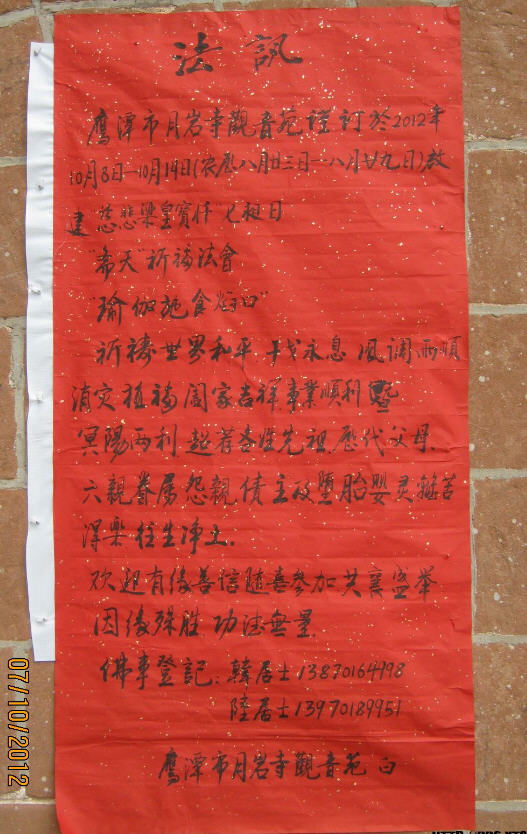 法訊
鹰潭市月岩寺觀音苑謹訂於2012年
10月8日—10月14日(农历八月廿三日—八月廿九日)啟
建“慈悲梁皇寳忏”七挺日
“斋天”祈福法會
“瑜伽施食焰口”
祈禱世界和平 干戈永息 風调雨順
消灾植福 阖家吉祥 事業順利 暨
冥陽两利 超荐各姓先祖 歷代父母.
六親眷屬 怨親債主及墮胎嬰灵離苦
得樂往生净土.
欢迎有缘善信随喜参加共襄盛举
因缘殊胜 功德無量.
佛事登記: 韓居士 13870164998
陸居士 13970189951
鹰潭市月岩寺觀音苑 白
07/10/2012